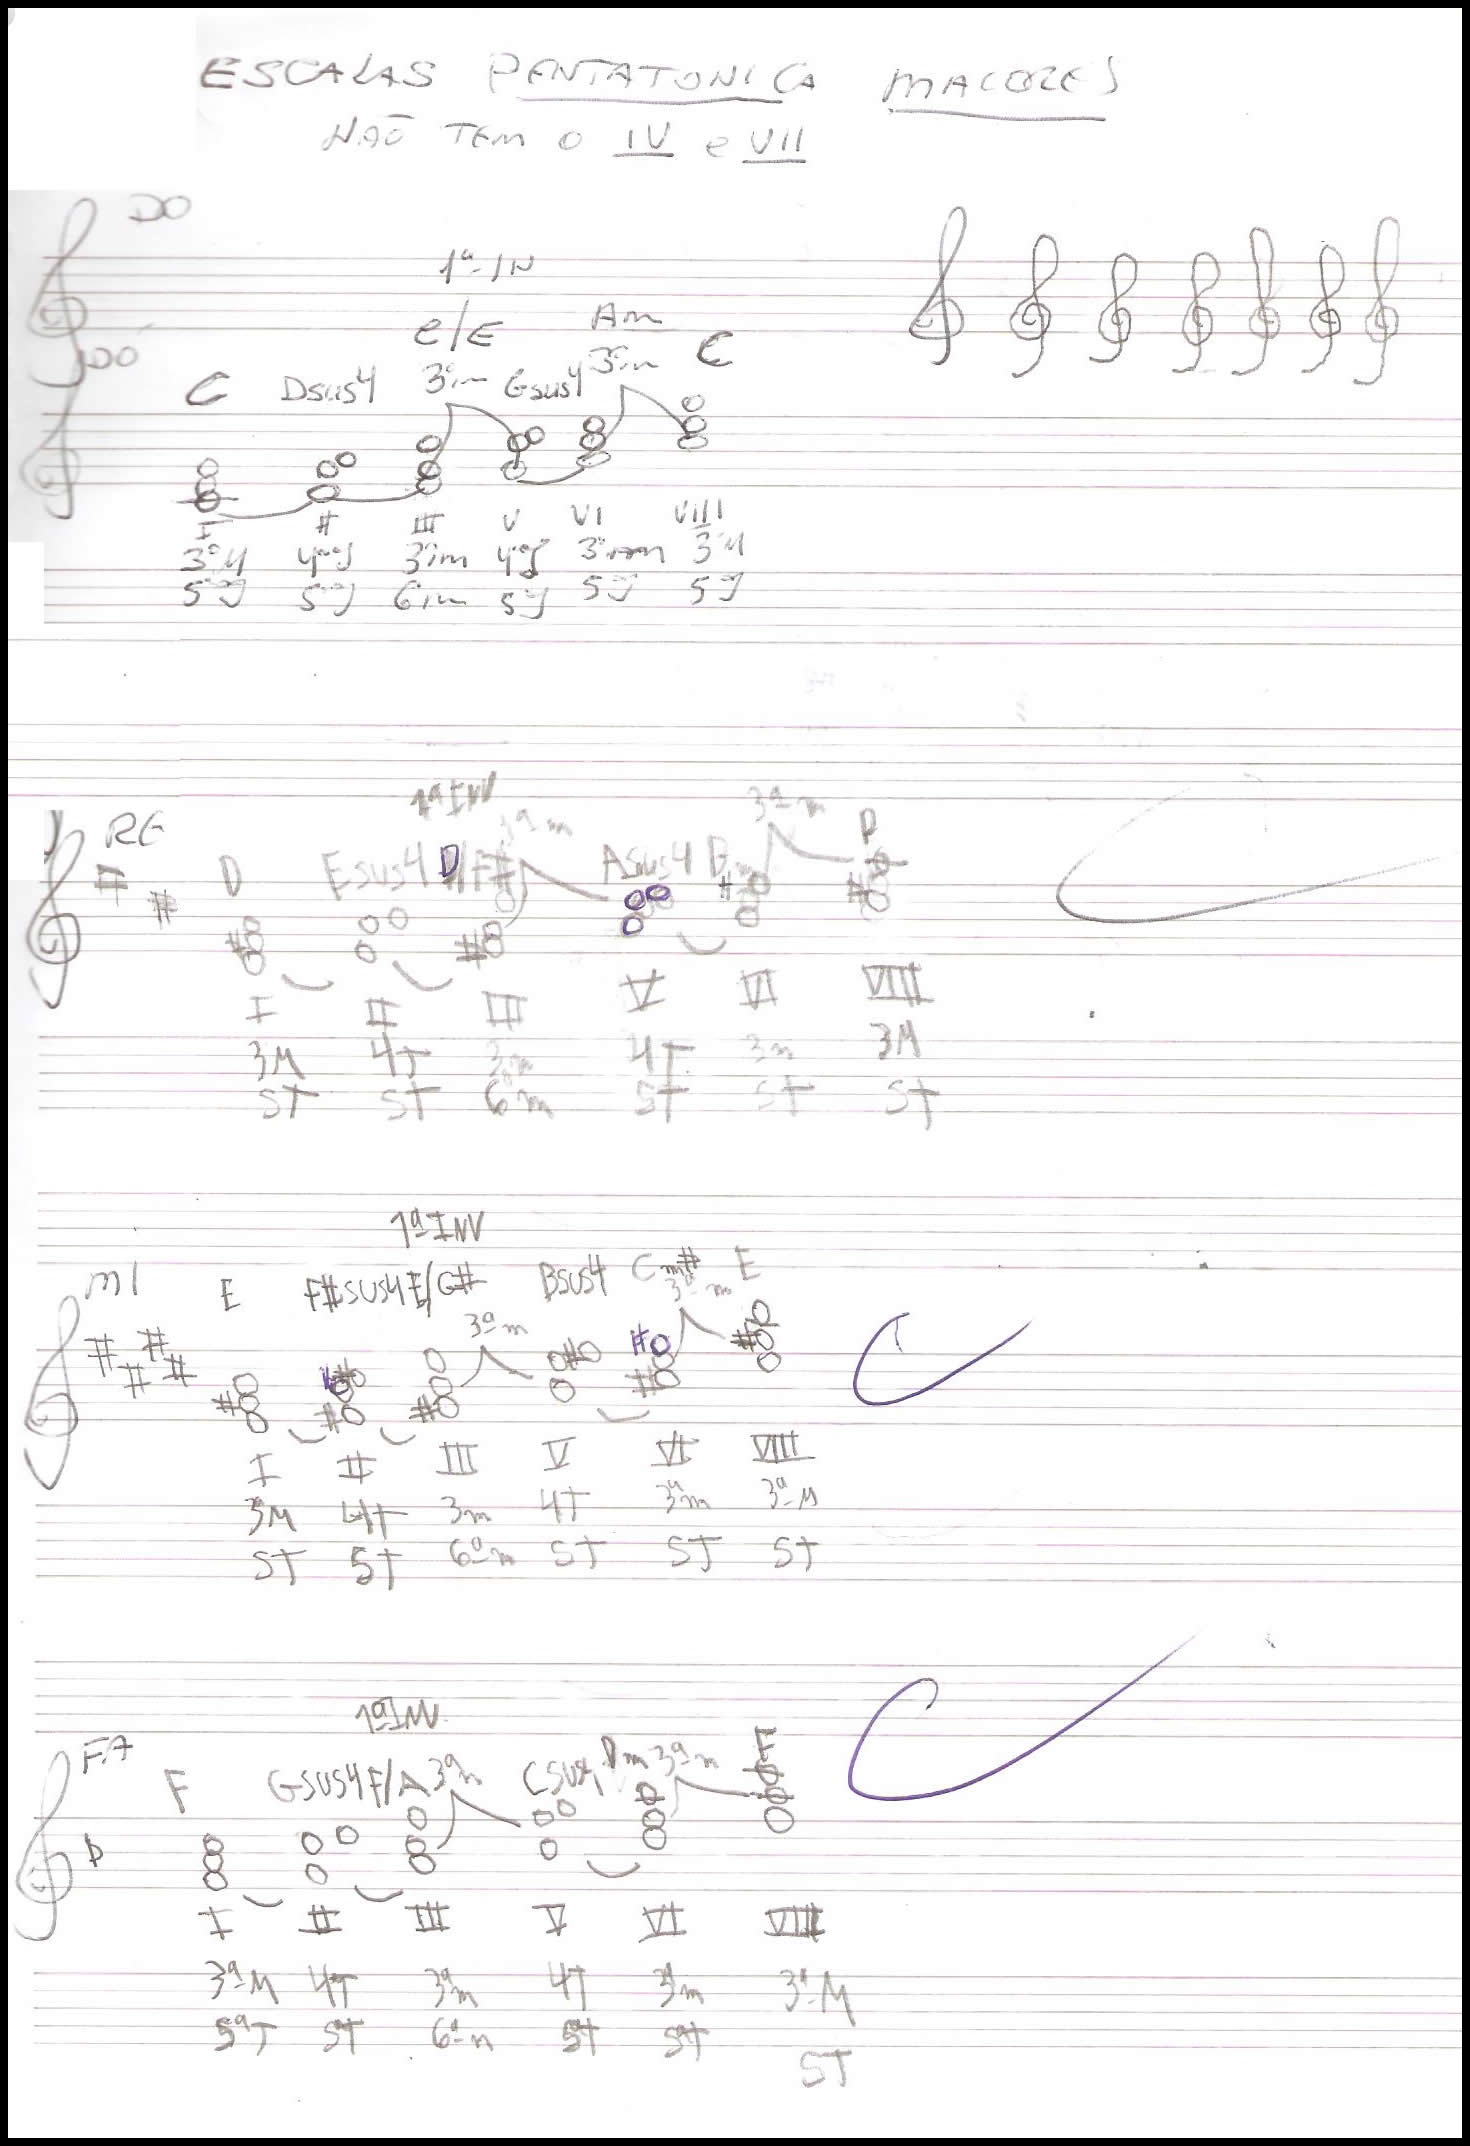 ESCALAS PENTATONICA MAIORES
NÃO TEM O IV e VII
DO
1ª IN
C/E Am
DÓ
C Dsus4 3ªm Gsus4 3ªm C
I II III V VI VIII
3ªM 4ªJ 3ªm 4ªJ 3ªm 3ªM
5ªJ 5ªJ 6ªm 5ªJ 5ªJ 5ªJ
1ª INV
RE 3ªm 3ªm
D Esus4 D/F# Asus4 Bm D
I II III V VI VIII
3M 4J 3m 4J 3m 3M
5J 5J 6m 5J 5J 5J
1ª INV
MI
E F#sus4 E/G# Bsus4 Cm# E
3ªm 3ªm
I II III V VI VIII
3M 4J 3m 4J 3ªm 3ªM
5J 5J 6ªm 5J 5J 5J
1ª INV
FA
F Gsus4 F/A 3ªm Csus4 Dm 3ªm F
I II III V VI VIII
3ªM 4J 3ªm 4J 3ªm 3ªM
5ªJ 5ªJ 6ªm 5ªJ 5ªJ 5J